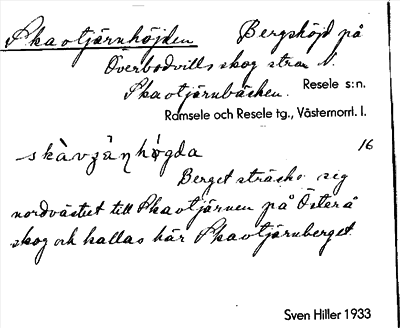 Skavtjärnhöjden Bergshöjd på
Överbodvills skog strax N.
Skavtjärnbäcken. Resele s:n.
Ramsele och Resele tg., Västernorrl. l.
skàvʒäɳhǿgda 16
Berget sträcker seg
nordvästut till Skavtjärnen på Österå
skog och kallas här Skavtjärnberget.
Sven Hiller 1933